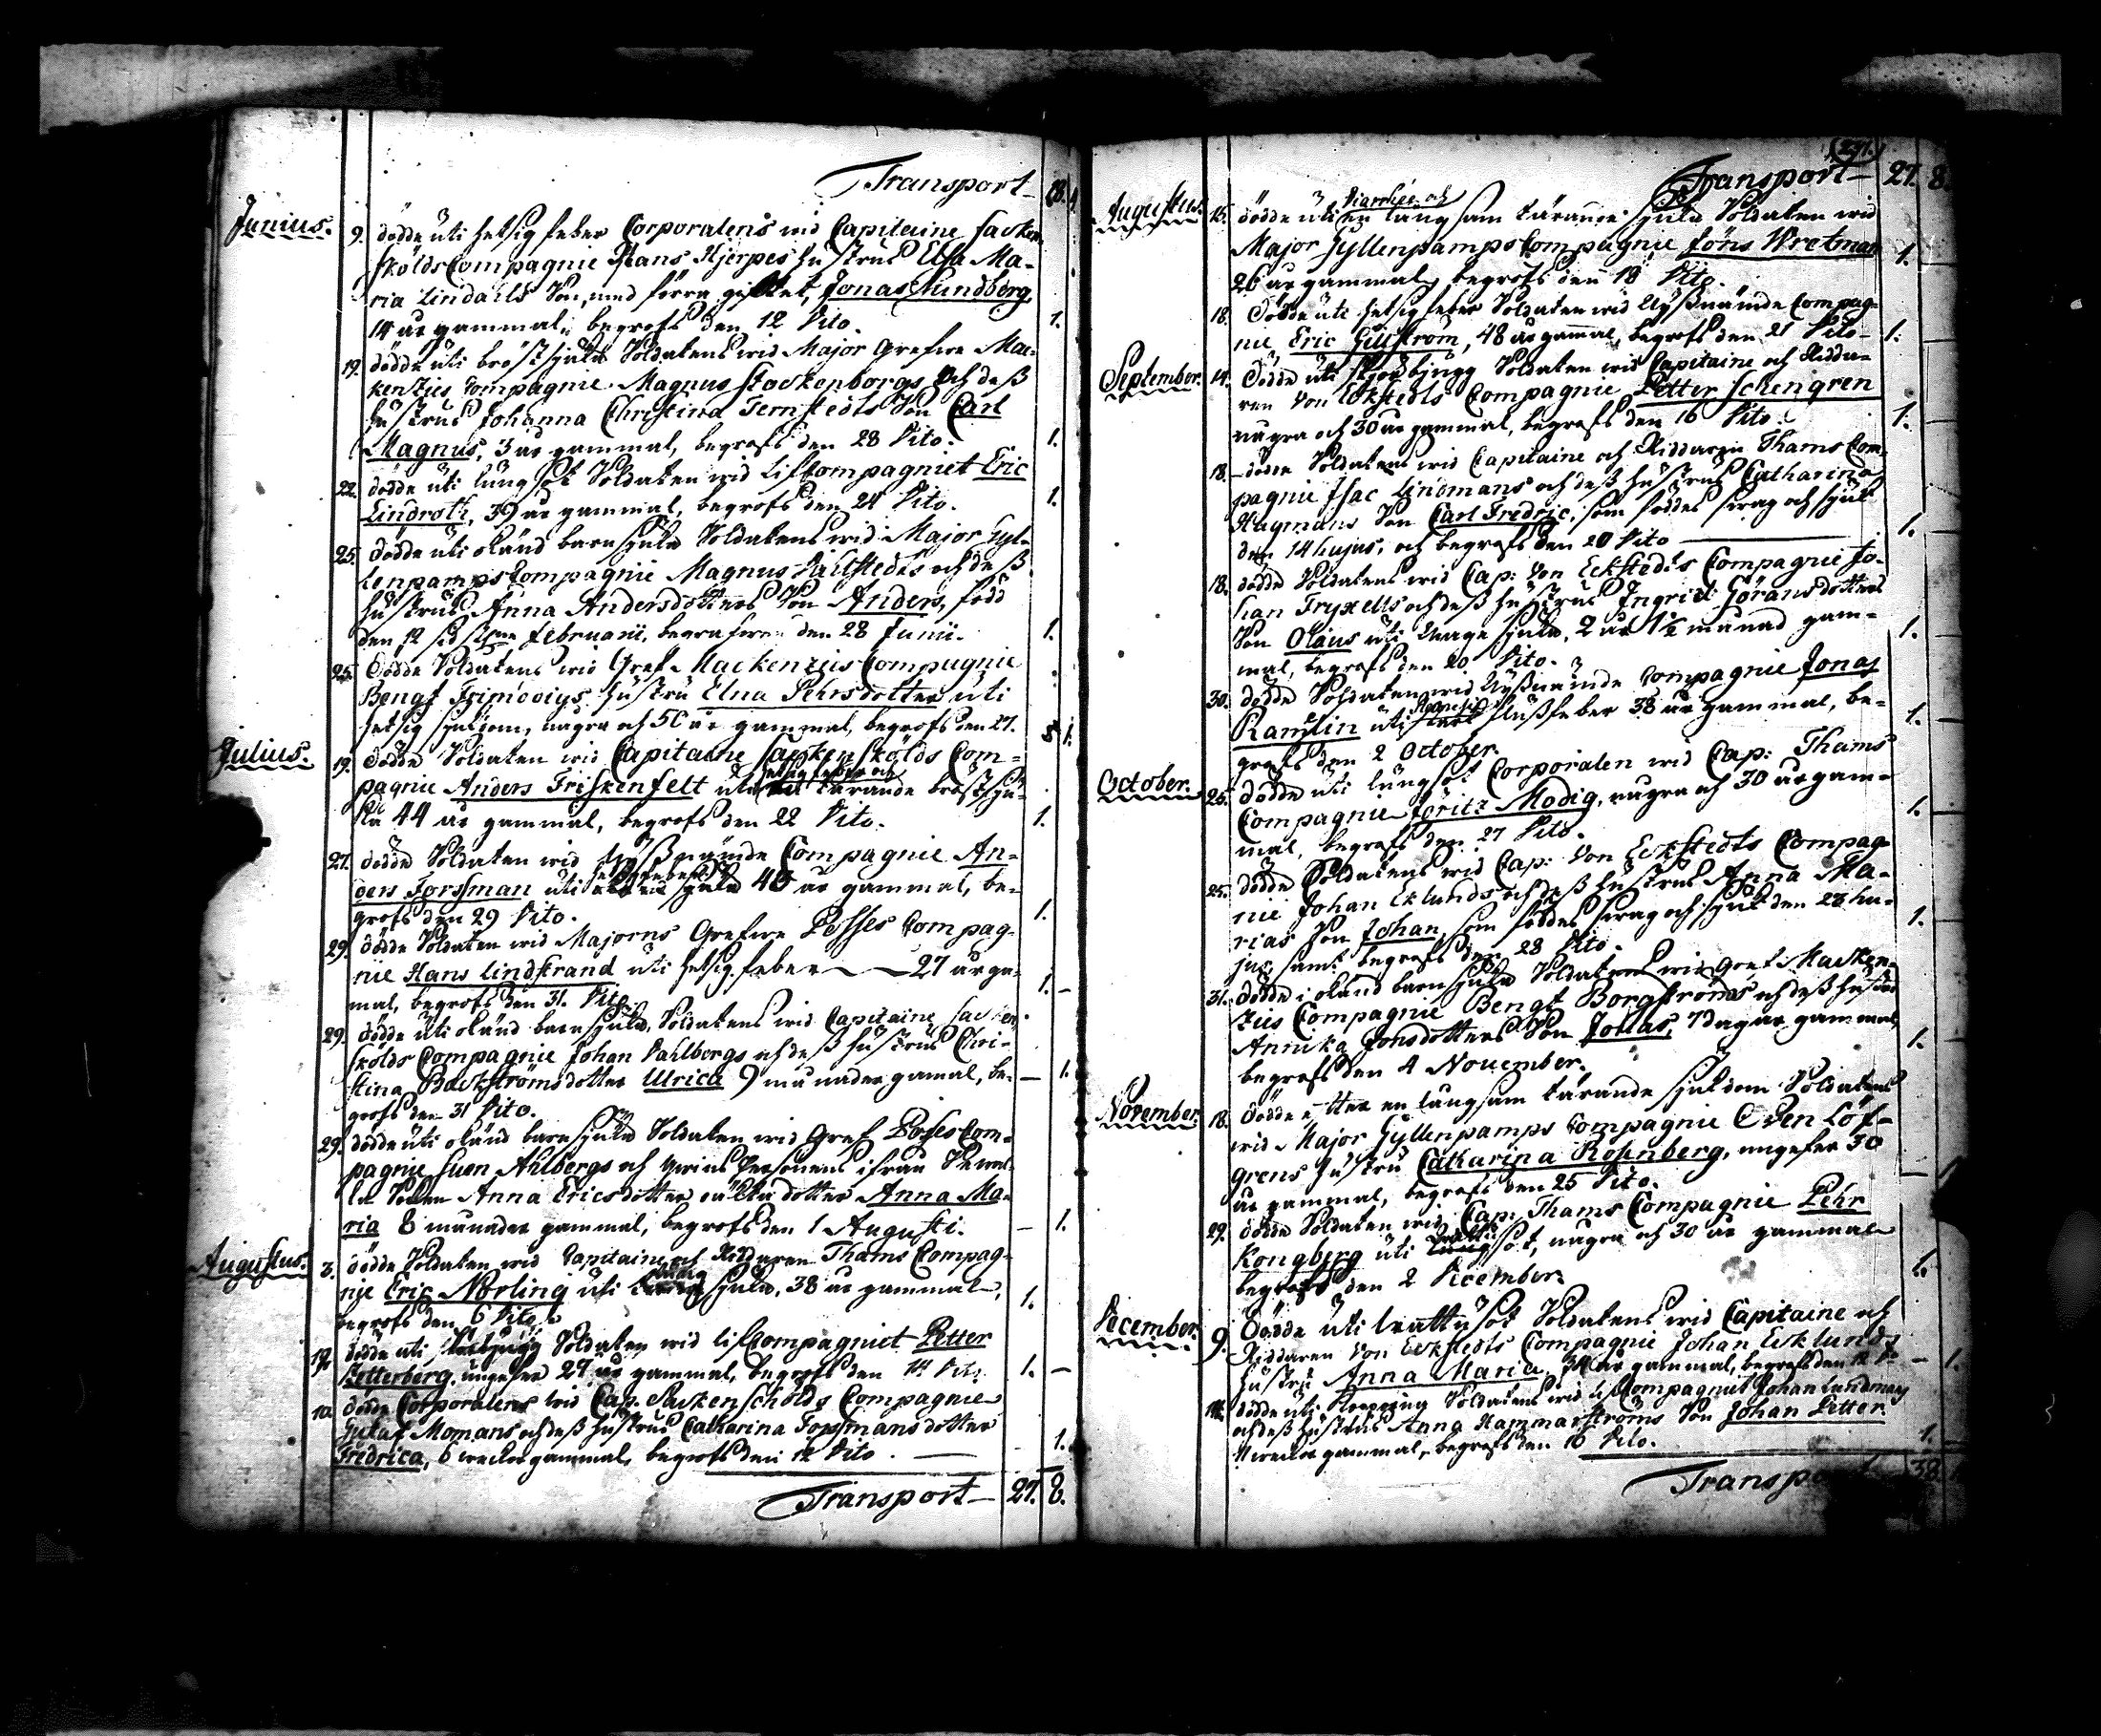 Transport 18. 4.
Junius. 9. dödde uti hetsig feber Corporalens wid Capitaine Sacken-
skölds Compagnie Hans Hjerpes hustrus Elsa Ma-
ria Lindahls Son, med förra giftet, Jonas Sundberg
14 år gammal, begrofs den 12 Dito. 1.
19. dödde uti bröstsjuka Soldatens wid Major Grefwe Mac-
kenzies Compagnie Magnus Stockenborgs och dess
hustrus Johanna Christina Ternstedts Son Carl
Magnus, 3 år gammal, begrofs den 23 Dito. 1.
22. dödde uti lungsot Soldaten wid Lif Compagniet Eric
Lindroth, 39 år gammal, begrofs den 24 Dito. 1.
25. dödde uti okänd barnsjuka Soldatens wid Major Gyl-
lenpamps Compagnie Magnus Dahlstedts och dess
hustrus Anna Andersdotters Son Anders, född
den 12 sidstl. Februarii, begrafwen den 28 Junii. 1.
25. Dödde Soldatens wid Gref Mackenzies Compagnie
Bengt hustru Elna Pehrsdotter uti
hetsig sjukdom, några och 50 år gammal, begrofs den 27. 1.
Julius. 19. dödde Soldaten wid Capitaine Sackenskölds Com-
pagnie Anders Friskenfelt uti hetsig feber och tärande bröstsju-
ka 44 år gammal, begrofs den 22 Dito. 1.
27. dödde Soldaten wid nyssnämde Compagnie An-
ders Forssman uti hetsig feber sjuka 40 år gammal, be-
grofs den 29 Dito. 1.
29. dödde Soldaten wid Majorns Grefwe Posses Compag-
nie Hans Lindstrand uti hetsig feber 27 år ga-
mal, begrofs den 31. Dito. 1.
29. dödde uti okänd barnsjuka, Soldatens wid Capitaine Sacken-
skölds Compagnie Johan Dahlbergs och dess hustrus Chri-
stina Backströms dotter Ulrica 9 månader gamal, be- 1.
grofs den 31 Dito.
29. dödde uti okänd barnsjuka Soldaten wid Gref Posses Com-
pagnie Suen Ahlbergs och Qwins Personens ifrån
Anna Ericsdotter oäkta dotter Anna Ma-
ria 8 månader gammal, begrofs den 1 Augusti. 1.
Augustus. 3. dödde Soldaten wid Capitaine och Riddaren Thams Compag-
nie Eric Norling uti sjuka, 38 år gammal, 1.
begrofs den 6 Dito.
12. dödde uti Soldaten wid Lif Compagniet Petter
Zetterberg, ungefer 29 år gammal, begrofs den 14 Dito. 1.
10. dödde Corporalens wid Cap. Sackenschölds Compagnie
Gustaf Momans och dess hustrus Catharina Forssmans dotter
Fredrica, 6 weckor gammal, begrofs den 12 Dito. 1.
Transport 27. 8.
(271.)
Transport 27. 8.
Augustus. 15. dödde uti Diarrhée och en långsam tärande sjuka Soldaten wid
Major Gyllenpamps Compagnie Jöns Wretman
26 år gammal, begrofs den 18 Dito. 1.
18. Dödde uti hetsig feber Soldaten wid nyssnämde Compag-
nie Eric Gillström, 48 år gammal, begrofs den 21 Dito 1.
September. 14. Dödde uti skörbjugg Soldaten wid Capitaine och Ridda-
ren Von Eckstedts Compagnie Petter Schengren
några och 30 år gammal, begrofs den 16 Dito. 1.
18. dödde Soldatens wid Capitaine och Riddaren Thams Com-
pagnie Isac Lindmans och dess hustrus Catharina
Hagmans Son Carl Fredric, som föddes swag och sjuk
den 14 hujus, och begrofs den 20 Dito 1.
18. dödde Soldatens wid Cap: Von Eckstedts Compagnie Jo-
han Fryxells och dess hustrus Ingrid Göransdotters
Son Olaus uti Mage sjuka, 2 år 1½ månad gam- 1.
mal, begrofs den 20 Dito.
30. dödde Soldaten wid nyssnämde Compagnie Jonas
Ramlin uti flussfeber 38 år gammal, be- 1.
grofs den 2 October.
October. 25. dödde uti lungsot Corporalen wid Cap: Thams
Compagnie Jöritz Modig, några och 30 år gam- 1.
mal, begrofs den 27 Dito.
25. dödde Soldatens wid Cap: Von Eckstedts Compag-
nie Johan Eklunds och dess hustrus Anna Ma-
rias Son Johan, som föddes swag och sjuk den 23 hu- 1.
jus, samt begrofs den 28 Dito.
31. dödde i okänd barnsjuka Soldatens wid Gref Macken-
zies Compagnie Bengt Borgströms och dess hustrus
Annika Jonsdotters Son Jonas, 7 dagar gammal, 1.
begrofs den 4 November.
November. 18. Dödde efter en långsam tärande sjukdom Soldatens
wid Major Gyllenpamps Compagnie Sven Löf-
grens hustru Catharina Rosenberg, ungefer 30 1.
år gammal, begrofs den 25 Dito.
29. dödde Soldaten wid Cap: Thams Compagnie Pehr
Kongberg uti sot, några och 30 år gammal 1.
begrofs den 2 December.
December. 9. Dödde uti wattusot Soldatens wid Capitaine och
Riddaren Von Eckstedts Compagnie Johan Ecklunds
hustru Anna Maria, 34 år gammal, begrofs den 12 1.
14. dödde uti Soldatens wid Lif Compagniet Johan Lundmans
och dess hustrus Anna Hammarströms Son Johan Petter
11 weckor gammal, begrofs den 16 Dito. 1.
Transport 38.